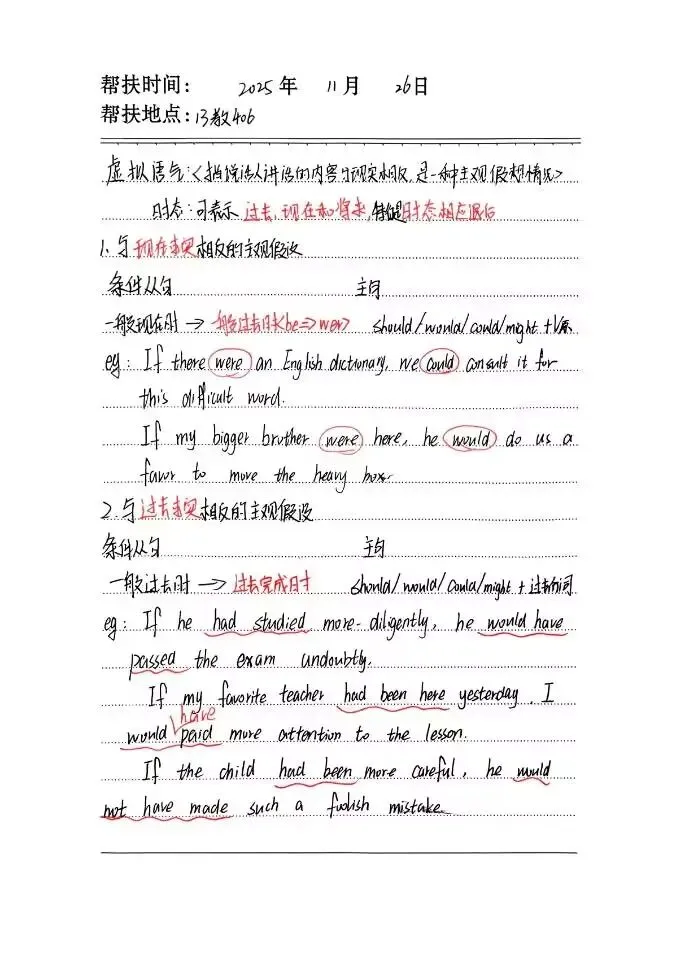 帮扶时间: 2025年 11月 26日
帮扶地点: 13教406
虚拟语气:<指说话人讲话的内容与现实相反,是一种主观假想情况>
时态:可表示 过去,现在和将来, 时态相应退后
1.与现在事实相反的主观假设
条件从句 主句
一般现在时 → 一般过去时<be=>were> should/would/could/might+V原
eg: If there were an English dictionary, we could consult it for
this difficult word.
If my bigger bruther were here, he would do us a
favor to move the heavy box.
2.与过去事实相反的主观假设
条件从句 主句
一般过去时 → 过去完成时 should/would/could/might + 过去分词
eg: If he had studied more diligently, he would have
passed the exam undoubtly.
If my favorite teacher had been here yesterday, I
would have paid more attention to the lesson.
If the child had been more careful, he would
not have made such a foolish mistake